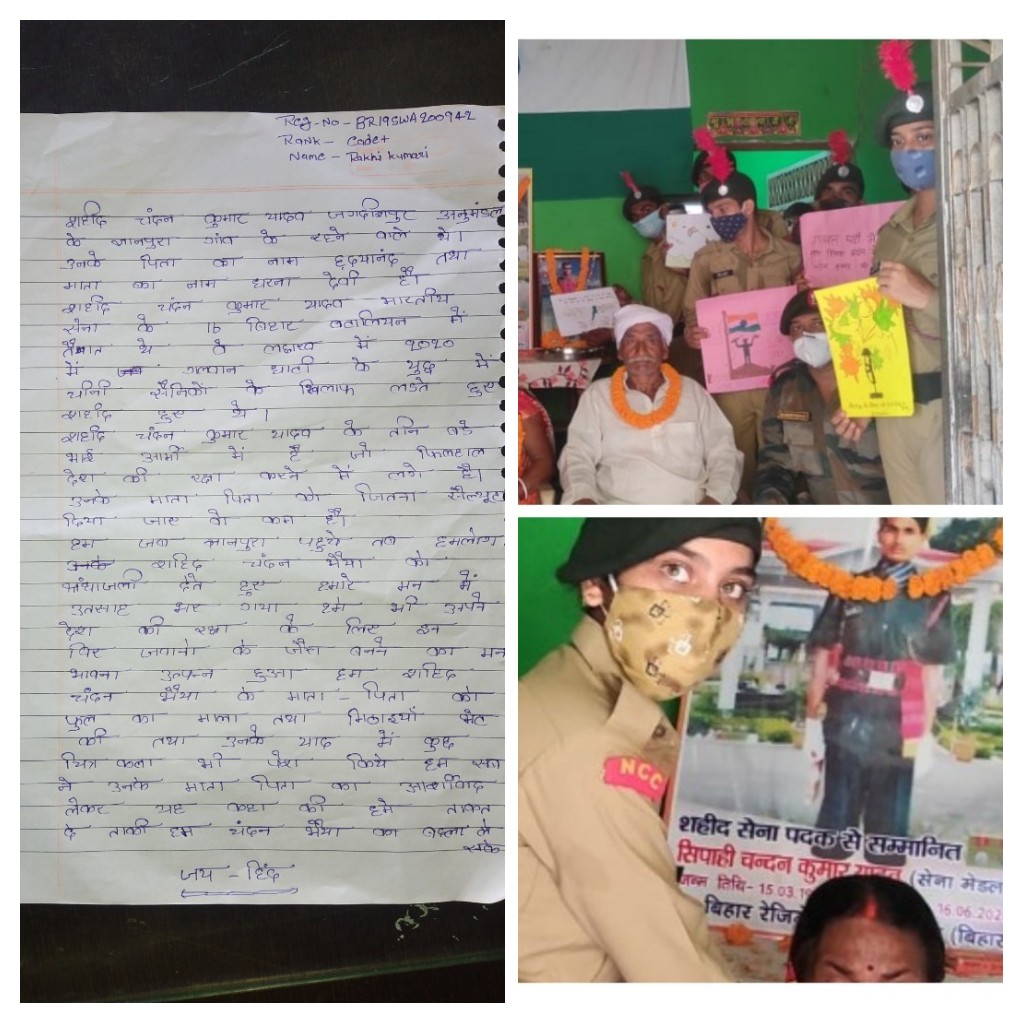 Reg-No - BR19SWA200942
Rank - Cadet
Name - Rakhi kumari
शहीद चंदन कुमार यादव जगदीशपुर अनुमंडल
के ज्ञानपुरा गांव के रहने वाले थे।
उनके पिता का नाम हृदयानंद तथा
माता का नाम धरना देवी है।
शहीद चंदन कुमार यादव भारतीय
सेना के 16 बिहार बटालियन में
तैनात थे वे लद्दाख में २०२०
में गलवान घाटी के युद्ध में
चीनी सैनिकों के खिलाफ लडते हुए
शहीद हुए थे।
शहीद चंदन कुमार यादव के तीन बडे
भाई आर्मी में है जो फिलहाल
देश की रक्षा करने में लगे है।
उनके माता पिता को जितना सैल्यूट
दिया जाए वो कम है।
हम जब ज्ञानपुरा पहुचे तब हमलोग
शहिद चंदन भैया को
श्रंधाजली देते हुए हमारे मन में
उतसाह भर गया हम भी अपने
देश की रक्षा के लिए इन
विर जवानो के जैस बनने का मन
भावना उत्पन्न हुआ हम शहिद
चंदन भैया के माता - पिता को
फुल का माला तथा मिठाइयाँ भेट
की तथा उनके याद में कुछ
चित्र कला भी पेश किये हम सब
ने उनके माता पिता का आर्शीवाद
लेकर यह कहा की हमे ताकत
दे ताकी हम चंदन भैया का बदला ले
सके
जय - हिंद
NCC
शहीद सेना पदक से सम्मानित
सिपाही चन्दन कुमार यादव (सेना मेडल
जन्म तिथि- 15.03.19
16.06.202
बिहार रेजि
(बिहार